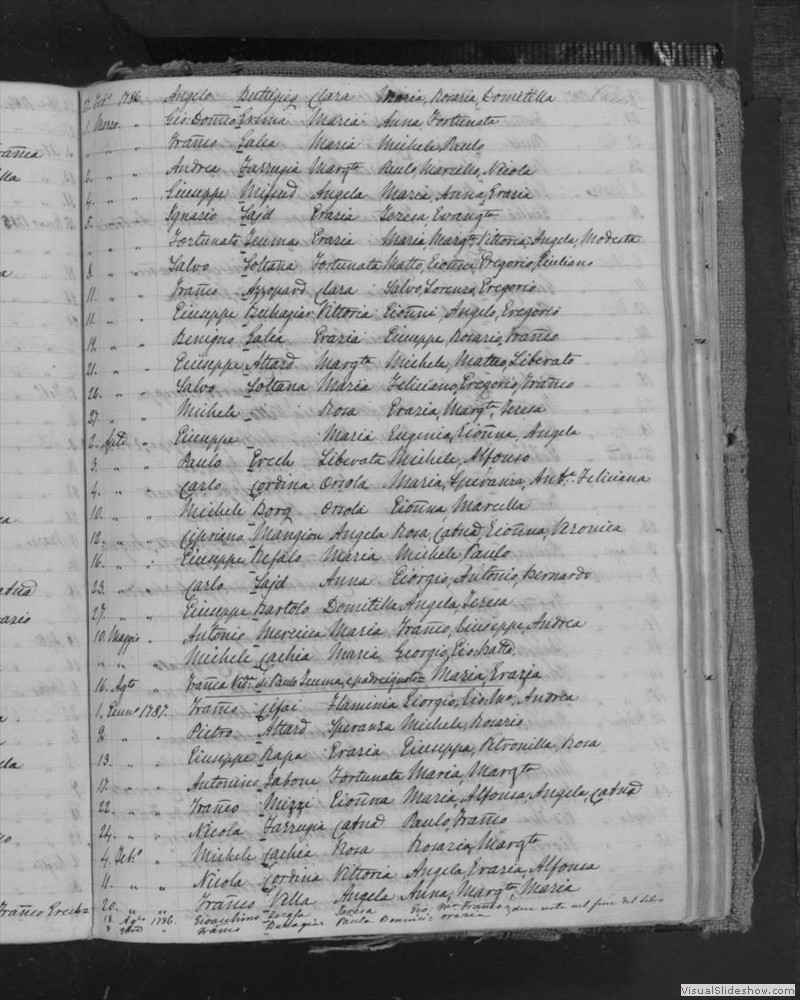 2. Feb.o 1786 Angelo Buttigieg Clara Maria, Rosaria, Domitilla
1. Marzo " Gio. Domco Grima Maria Anna, Fortunata
" " Franco Galea Maria Michele, Paulo
2. " " Andrea Farrugia Margta Paulo, Marcello, Nicola
4. " " Giuseppe Mifsud Angela Maria, Anna, Grazia
5. " " Ignazio Sajd Grazia Teresa, Evangta
" " Fortunato Zeuma Grazia Maria, Margta Vittoria, Angela, Modesta
8. " " Salvo Soltana Fortunata Matteo, Gionni, Gregorio, Giuliano
11. " " Franco Azzopard Clara Salvo, Lorenzo, Gregorio
11. " " Giuseppe Buttagiar Vittoria Gionni, Angelo, Gregorio
19. " " Benigno Galea Grazia Giuseppe, Rosario, Franco
21. " " Giuseppe Attard Margta Michele, Matteo, Liberato
26. " " Salvo Soltana Maria Feliciano, Gregorio, Franco
27. " " Michele Rosa Grazia, Margta, Teresa
2. Aple " Giuseppe Maria Eugenia, Gionna, Angela
3. " " Paulo Grech Liberata Michele, Alfonso
4. " " Carlo Cordina Orsola Maria, Speranza, Anta. Feliciana
10. " " Michele Borg Orsola Gionna Marcella
12. " " Cipriano Mangion Angela Rosa, Catna, Gionna, Veronica
16. " " Giuseppe Refalo Maria Michele, Paulo
23. " " Carlo Sajd Anna Giorgio, Antonio, Bernardo
27. " " Giuseppe Bartolo Domitilla Angela, Teresa
10. Maggio " Antonio Mercieca Maria Franco, Giuseppe, Andrea
" " " Michele Cachia Maria Georgio, Gio. Batta.
16. Agto " Franca Veda di Paulo Zeuma Maria, Grazia
1. Genno 1787. Franco Cifai Flaminia Giorgio, Gio. Ma, Andrea
2. " " Pietro Attard Speranza Michele, Rosario
13. " " Giuseppe Rapa Grazia Giuseppa, Petronilla, Rosa
17. " " Antonino Sabone Fortunata Maria, Margta
22. " " Franco Mizzi Gionna Maria, Alfonsa, Angela, Catna
24. " " Nicola Farrugia Catna Paulo, Franco
4. Feb.o " Michele Cachia Rosa Rosaria, Margta
11. " " Nicola Cordina Vittoria Angela, Grazia, Alfonsa
20. " " Franco Villa Angela Anna, Margta, Maria
18. Ago 1786. Gioachino Teresa Gio. Ma. Franco due note nel fine del libro
" Franco Buttagiar Paula Grazia
Franco Grech
VisualSlideshow.com